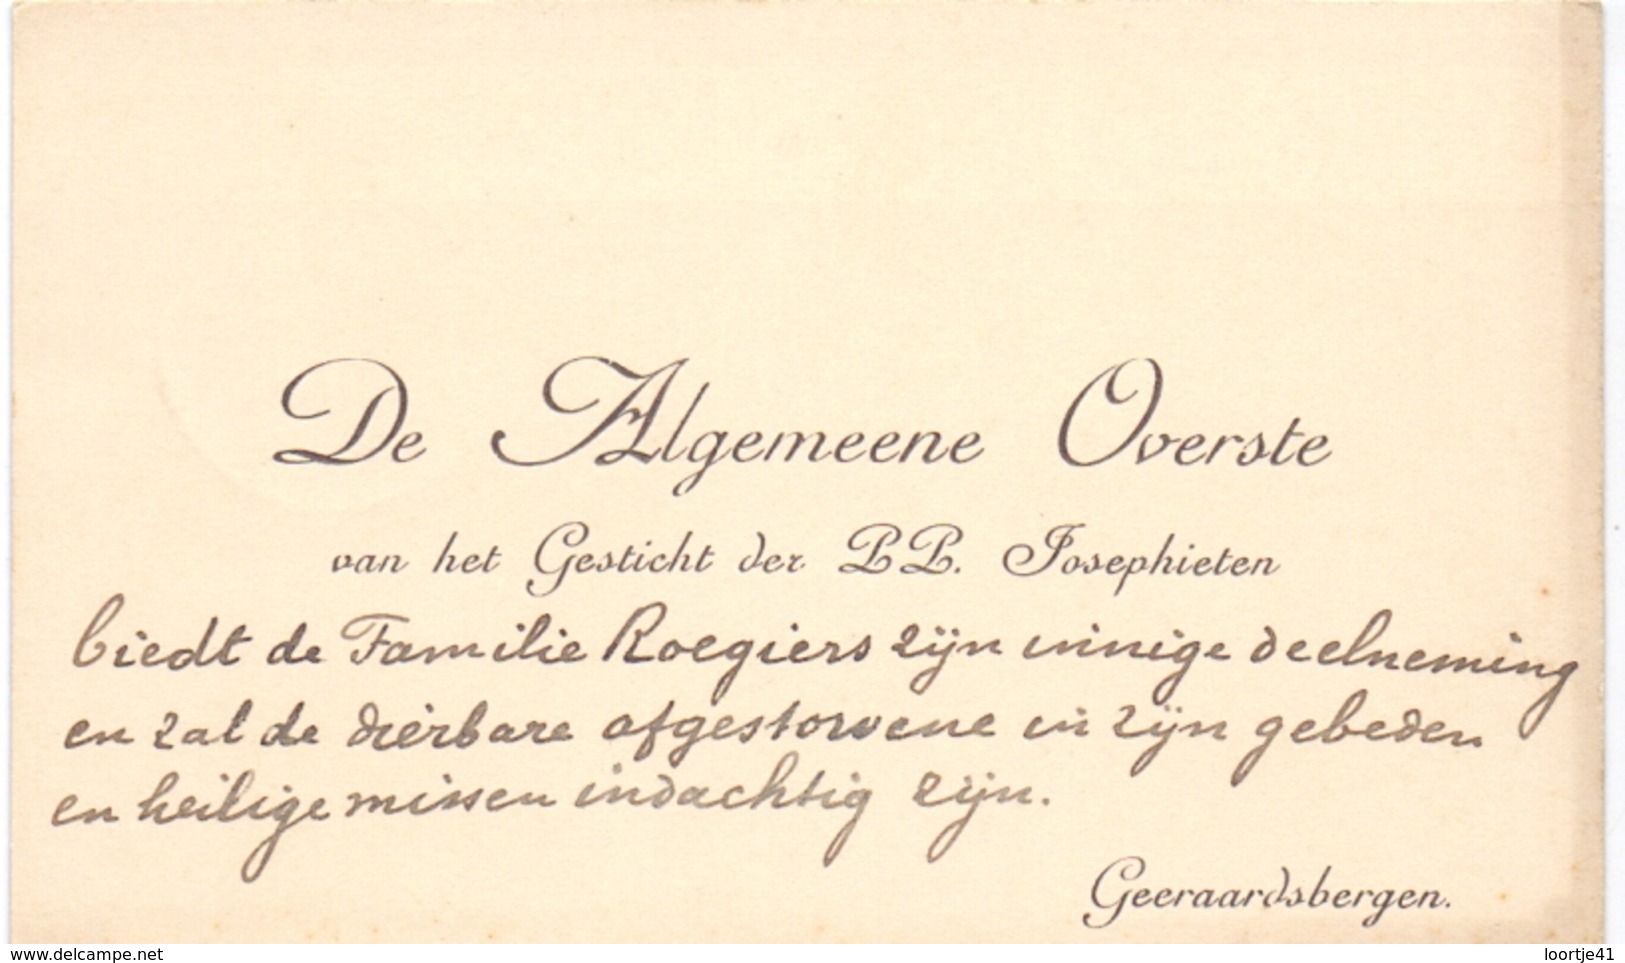 De Algemeene Overste
van het Gesticht der P.P. Josephieten
biedt de Familie Roegiers zijn innige deelneming
en zal de dierbare afgestorvene in zijn gebeden
en heilige missen indachtig zijn.
Geeraardsbergen.
www.delcampe.net
loortje41